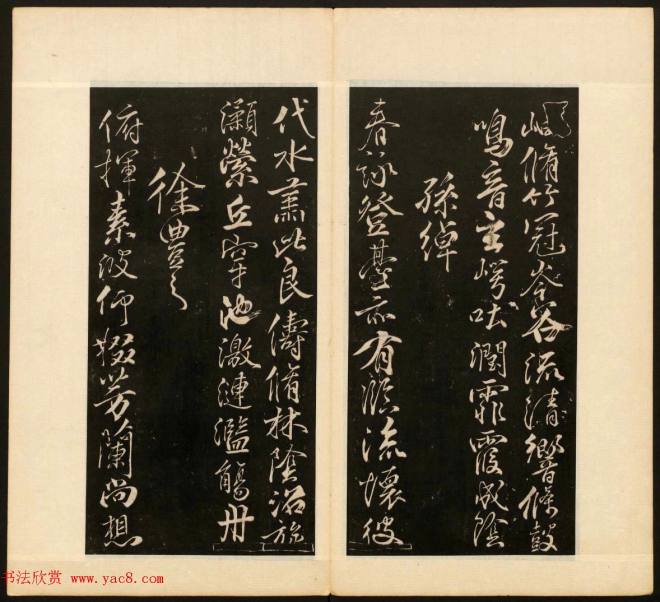 翳岫脩竹冠岑谷流清響條鼓
鳴音玄崿吐潤霏霞成陰
孫綽
春詠登臺亦有臨流懷彼
伐木肅此良儔脩林陰沼旋
瀨縈丘穿池激漣濫觴舟
徐豐之
俯揮素波仰掇芳蘭尚想
书法欣赏 www.yac8.com